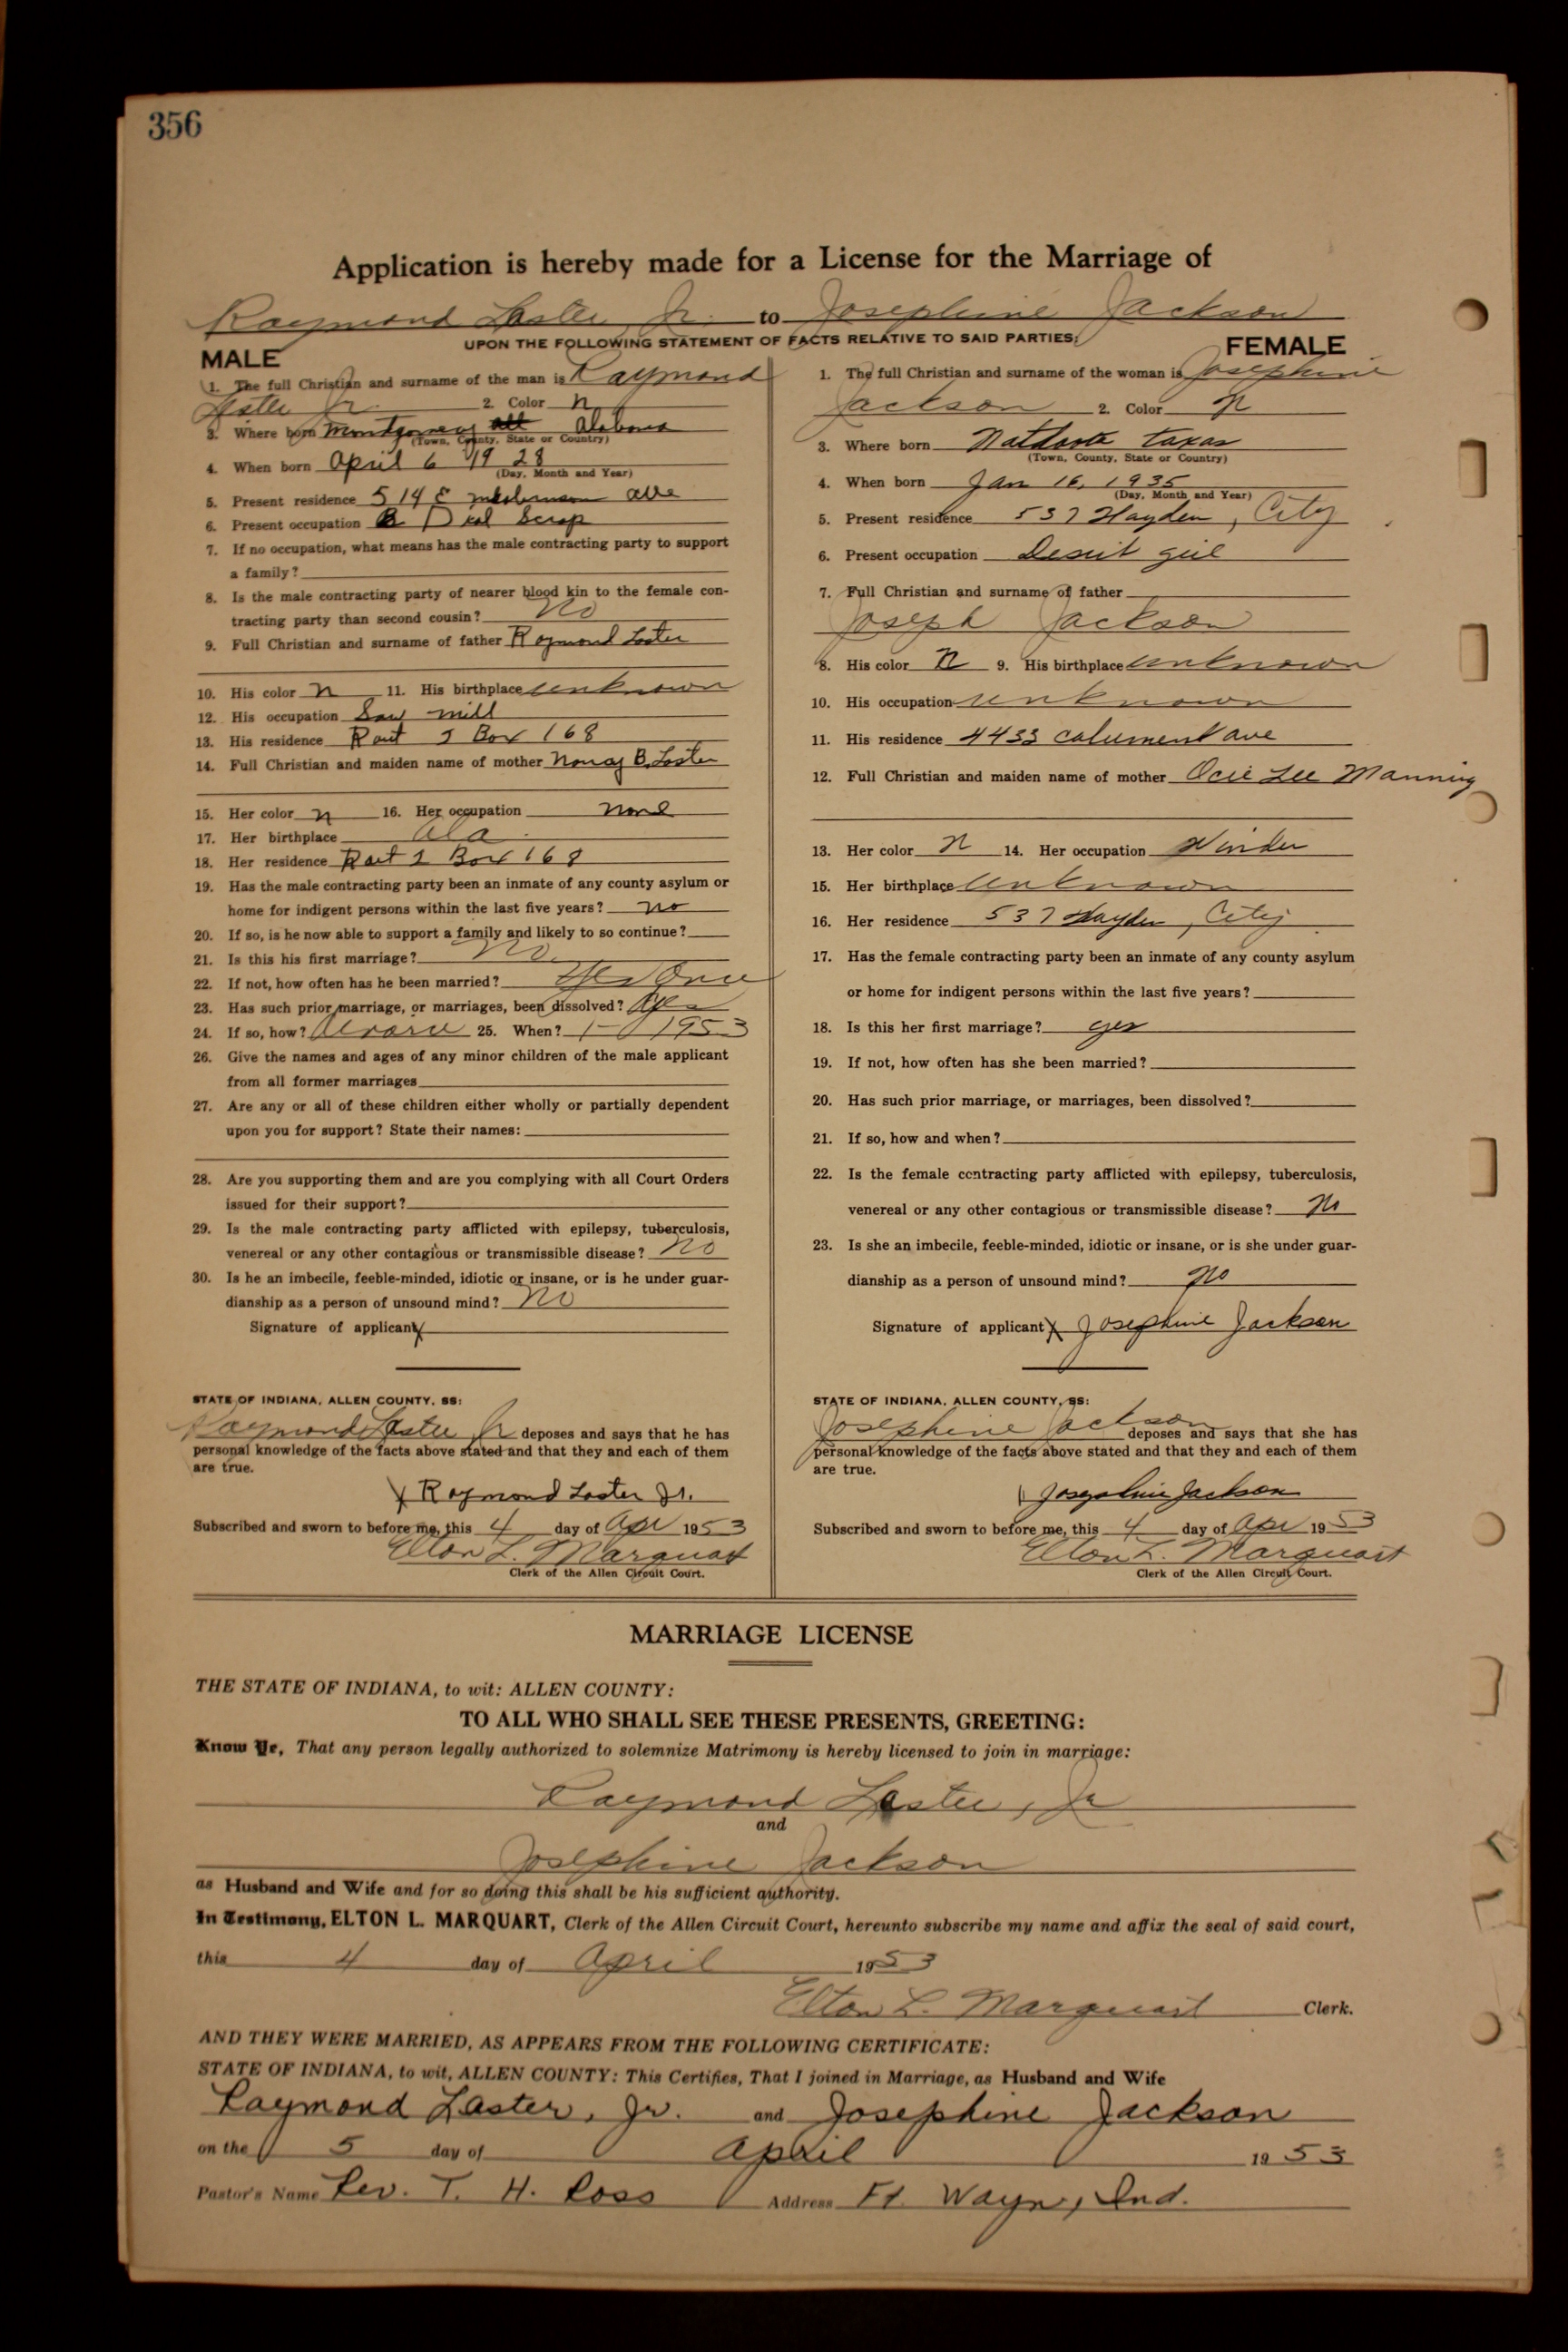 356
Application is hereby made for a License for the Marriage of
Raymond Laster Jr. to Josephine Jackson
UPON THE FOLLOWING STATEMENT OF FACTS RELATIVE TO SAID PARTIES:
MALE
1. The full Christian and surname of the man is Raymond
Laster Jr. 2. Color n
3. Where born Montgomery Alabama
(Town, County, State or Country)
4. When born April 6 1928
(Day, Month and Year)
5. Present residence 514 E
6. Present occupation Scrap
7. If no occupation, what means has the male contracting party to support
a family?
8. Is the male contracting party of nearer blood kin to the female con-
tracting party than second cousin? no
9. Full Christian and surname of father Raymond Laster
10. His color n 11. His birthplace unknown
12. His occupation Saw mill
13. His residence Rout Box 168
14. Full Christian and maiden name of mother B. Laster
15. Her color n 16. Her occupation none
17. Her birthplace Ala
18. Her residence Rout Box 168
19. Has the male contracting party been an inmate of any county asylum or
home for indigent persons within the last five years? no
20. If so, is he now able to support a family and likely to so continue?
21. Is this his first marriage? no.
22. If not, how often has he been married? Once
23. Has such prior marriage, or marriages, been dissolved? Yes
24. If so, how? 25. When? 1953
26. Give the names and ages of any minor children of the male applicant
from all former marriages
27. Are any or all of these children either wholly or partially dependent
upon you for support? State their names:
28. Are you supporting them and are you complying with all Court Orders
issued for their support?
29. Is the male contracting party afflicted with epilepsy, tuberculosis,
venereal or any other contagious or transmissible disease? no
30. Is he an imbecile, feeble-minded, idiotic or insane, or is he under guar-
dianship as a person of unsound mind? no
Signature of applicant X
STATE OF INDIANA, ALLEN COUNTY, SS:
Raymond Laster Jr deposes and says that he has
personal knowledge of the facts above stated and that they and each of them
are true.
X Raymond Laster Jr.
Subscribed and sworn to before me, this 4 day of Apr 1953
Elton L. Marquart
Clerk of the Allen Circuit Court.
FEMALE
1. The full Christian and surname of the woman is Josephine
Jackson 2. Color n
3. Where born taxas
(Town, County, State or Country)
4. When born Jan 16, 1935
(Day, Month and Year)
5. Present residence 537 Hayden, City
6. Present occupation
7. Full Christian and surname of father
Joseph Jackson
8. His color n 9. His birthplace unknown
10. His occupation unknown
11. His residence 4433 calument ave
12. Full Christian and maiden name of mother Ocie Lee Manning
13. Her color n 14. Her occupation Winder
15. Her birthplace unknown
16. Her residence 537 Hayden, City
17. Has the female contracting party been an inmate of any county asylum
or home for indigent persons within the last five years?
18. Is this her first marriage? yes
19. If not, how often has she been married?
20. Has such prior marriage, or marriages, been dissolved?
21. If so, how and when?
22. Is the female contracting party afflicted with epilepsy, tuberculosis,
venereal or any other contagious or transmissible disease? no
23. Is she an imbecile, feeble-minded, idiotic or insane, or is she under guar-
dianship as a person of unsound mind? no
Signature of applicant X Josephine Jackson
STATE OF INDIANA, ALLEN COUNTY, SS:
Josephine Jackson deposes and says that she has
personal knowledge of the facts above stated and that they and each of them
are true.
Josephine Jackson
Subscribed and sworn to before me, this 4 day of Apr 1953
Elton L. Marquart
Clerk of the Allen Circuit Court.
MARRIAGE LICENSE
THE STATE OF INDIANA, to wit: ALLEN COUNTY:
TO ALL WHO SHALL SEE THESE PRESENTS, GREETING:
Know Ye, That any person legally authorized to solemnize Matrimony is hereby licensed to join in marriage:
Raymond Laster, Jr
and
Josephine Jackson
as Husband and Wife and for so doing this shall be his sufficient authority.
In Testimony, ELTON L. MARQUART, Clerk of the Allen Circuit Court, hereunto subscribe my name and affix the seal of said court,
this 4 day of April 1953
Elton L. Marquart Clerk.
AND THEY WERE MARRIED, AS APPEARS FROM THE FOLLOWING CERTIFICATE:
STATE OF INDIANA, to wit, ALLEN COUNTY: This Certifies, That I joined in Marriage, as Husband and Wife
Raymond Laster, Jr. and Josephine Jackson
on the 5 day of April 1953
Pastor's Name Rev. T. H. Ross Address Ft. Wayn, Ind.